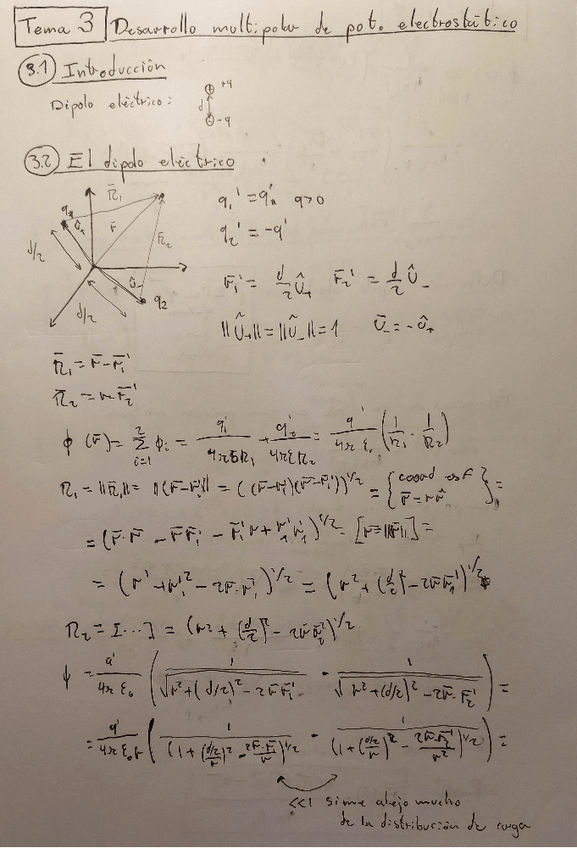 Tema 3 Desarrollo multipolar de pot. electrostático
3.1 Introducción
Dipolo eléctrico:
+q
d
-q
3.2 El dipolo eléctrico
R̄₁
q₁
r̄
R̄₂
û₊
d/2
û₋
q₂
d/2
q₁' = q' q>0
q₂' = -q'
r̄₁' = d/2 û₊ r̄₂' = d/2 û₋
||û₊|| = ||û₋|| = 1 ū₋ = -û₊
R̄₁ = r̄ - r̄₁'
R̄₂ = r - r̄₂'
ϕ(r̄) = Σ_{i=1}^{2} ϕᵢ = q₁'/(4πε₀R₁) + q₂'/(4πεR₂) = q'/(4πε₀) (1/R₁ - 1/R₂)
R₁ = ||R̄₁|| = ||(r̄-r̄₁')|| = ((r̄-r̄₁')(r̄-r̄₁'))^{1/2} = {coord esf r̄ = r r̂} =
= (r̄·r̄ - r̄r̄₁' - r̄₁'r + r̄₁'r̄₁')^{1/2} = [r=||r̄||] =
= (r² + r₁'² - 2r̄·r̄₁')^{1/2} = (r² + (d/2)² - 2r̄r̄₁')^{1/2}
R₂ = [...] = (r² + (d/2)² - 2r̄r̄₂')^{1/2}
ϕ = q'/(4πε₀) (1/√(r² + (d/2)² - 2r̄r̄₁') - 1/√(r² + (d/2)² - 2r̄·r̄₂')) =
= q'/(4πε₀r) (1/(1 + ((d/2)/r)² - 2r̄·r̄₁'/r²)^{1/2} - 1/(1 + ((d/2)/r)² - 2r̄·r̄₂'/r²)^{1/2}) =
<<1 si me alejo mucho
de la distribución de carga